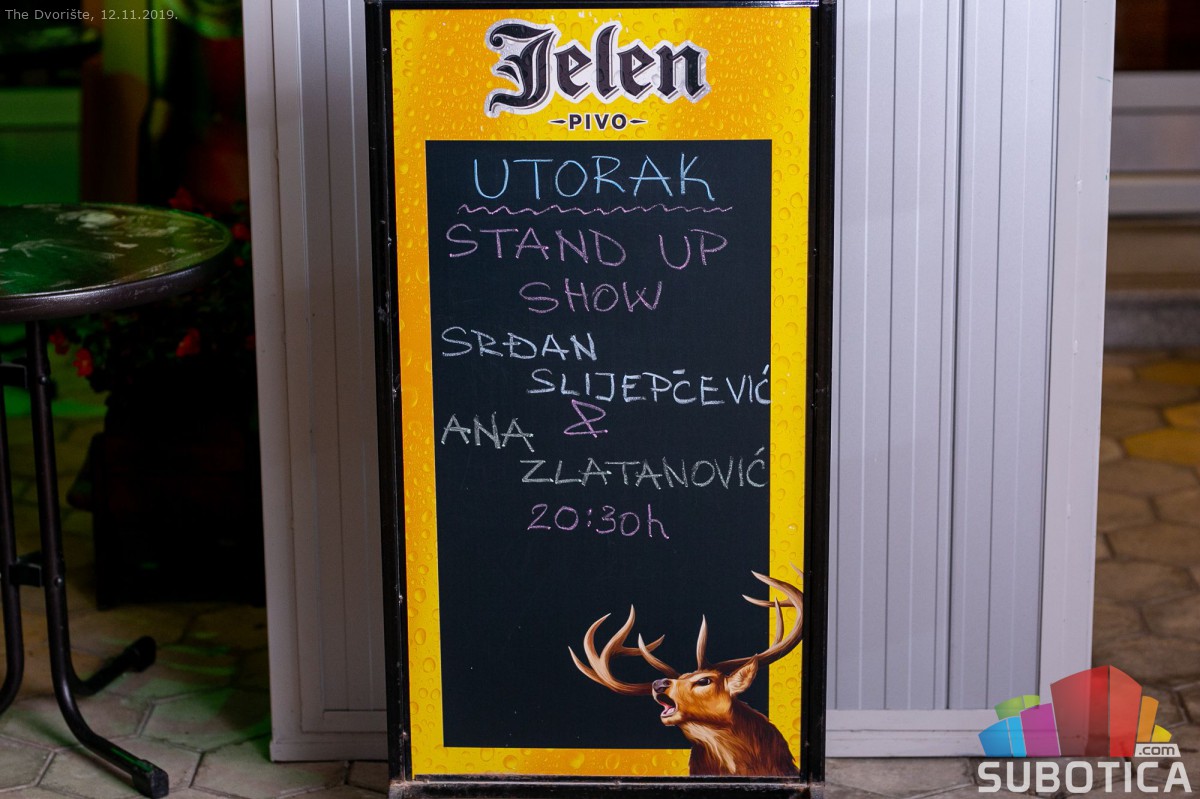 The Dvorište, 12.11.2019.
Jelen
PIVO
UTORAK
STAND UP
SHOW
SRĐAN
SLIJEPČEVIĆ
&
ANA
ZLATANOVIĆ
20:30h
.com
SUBOTICA